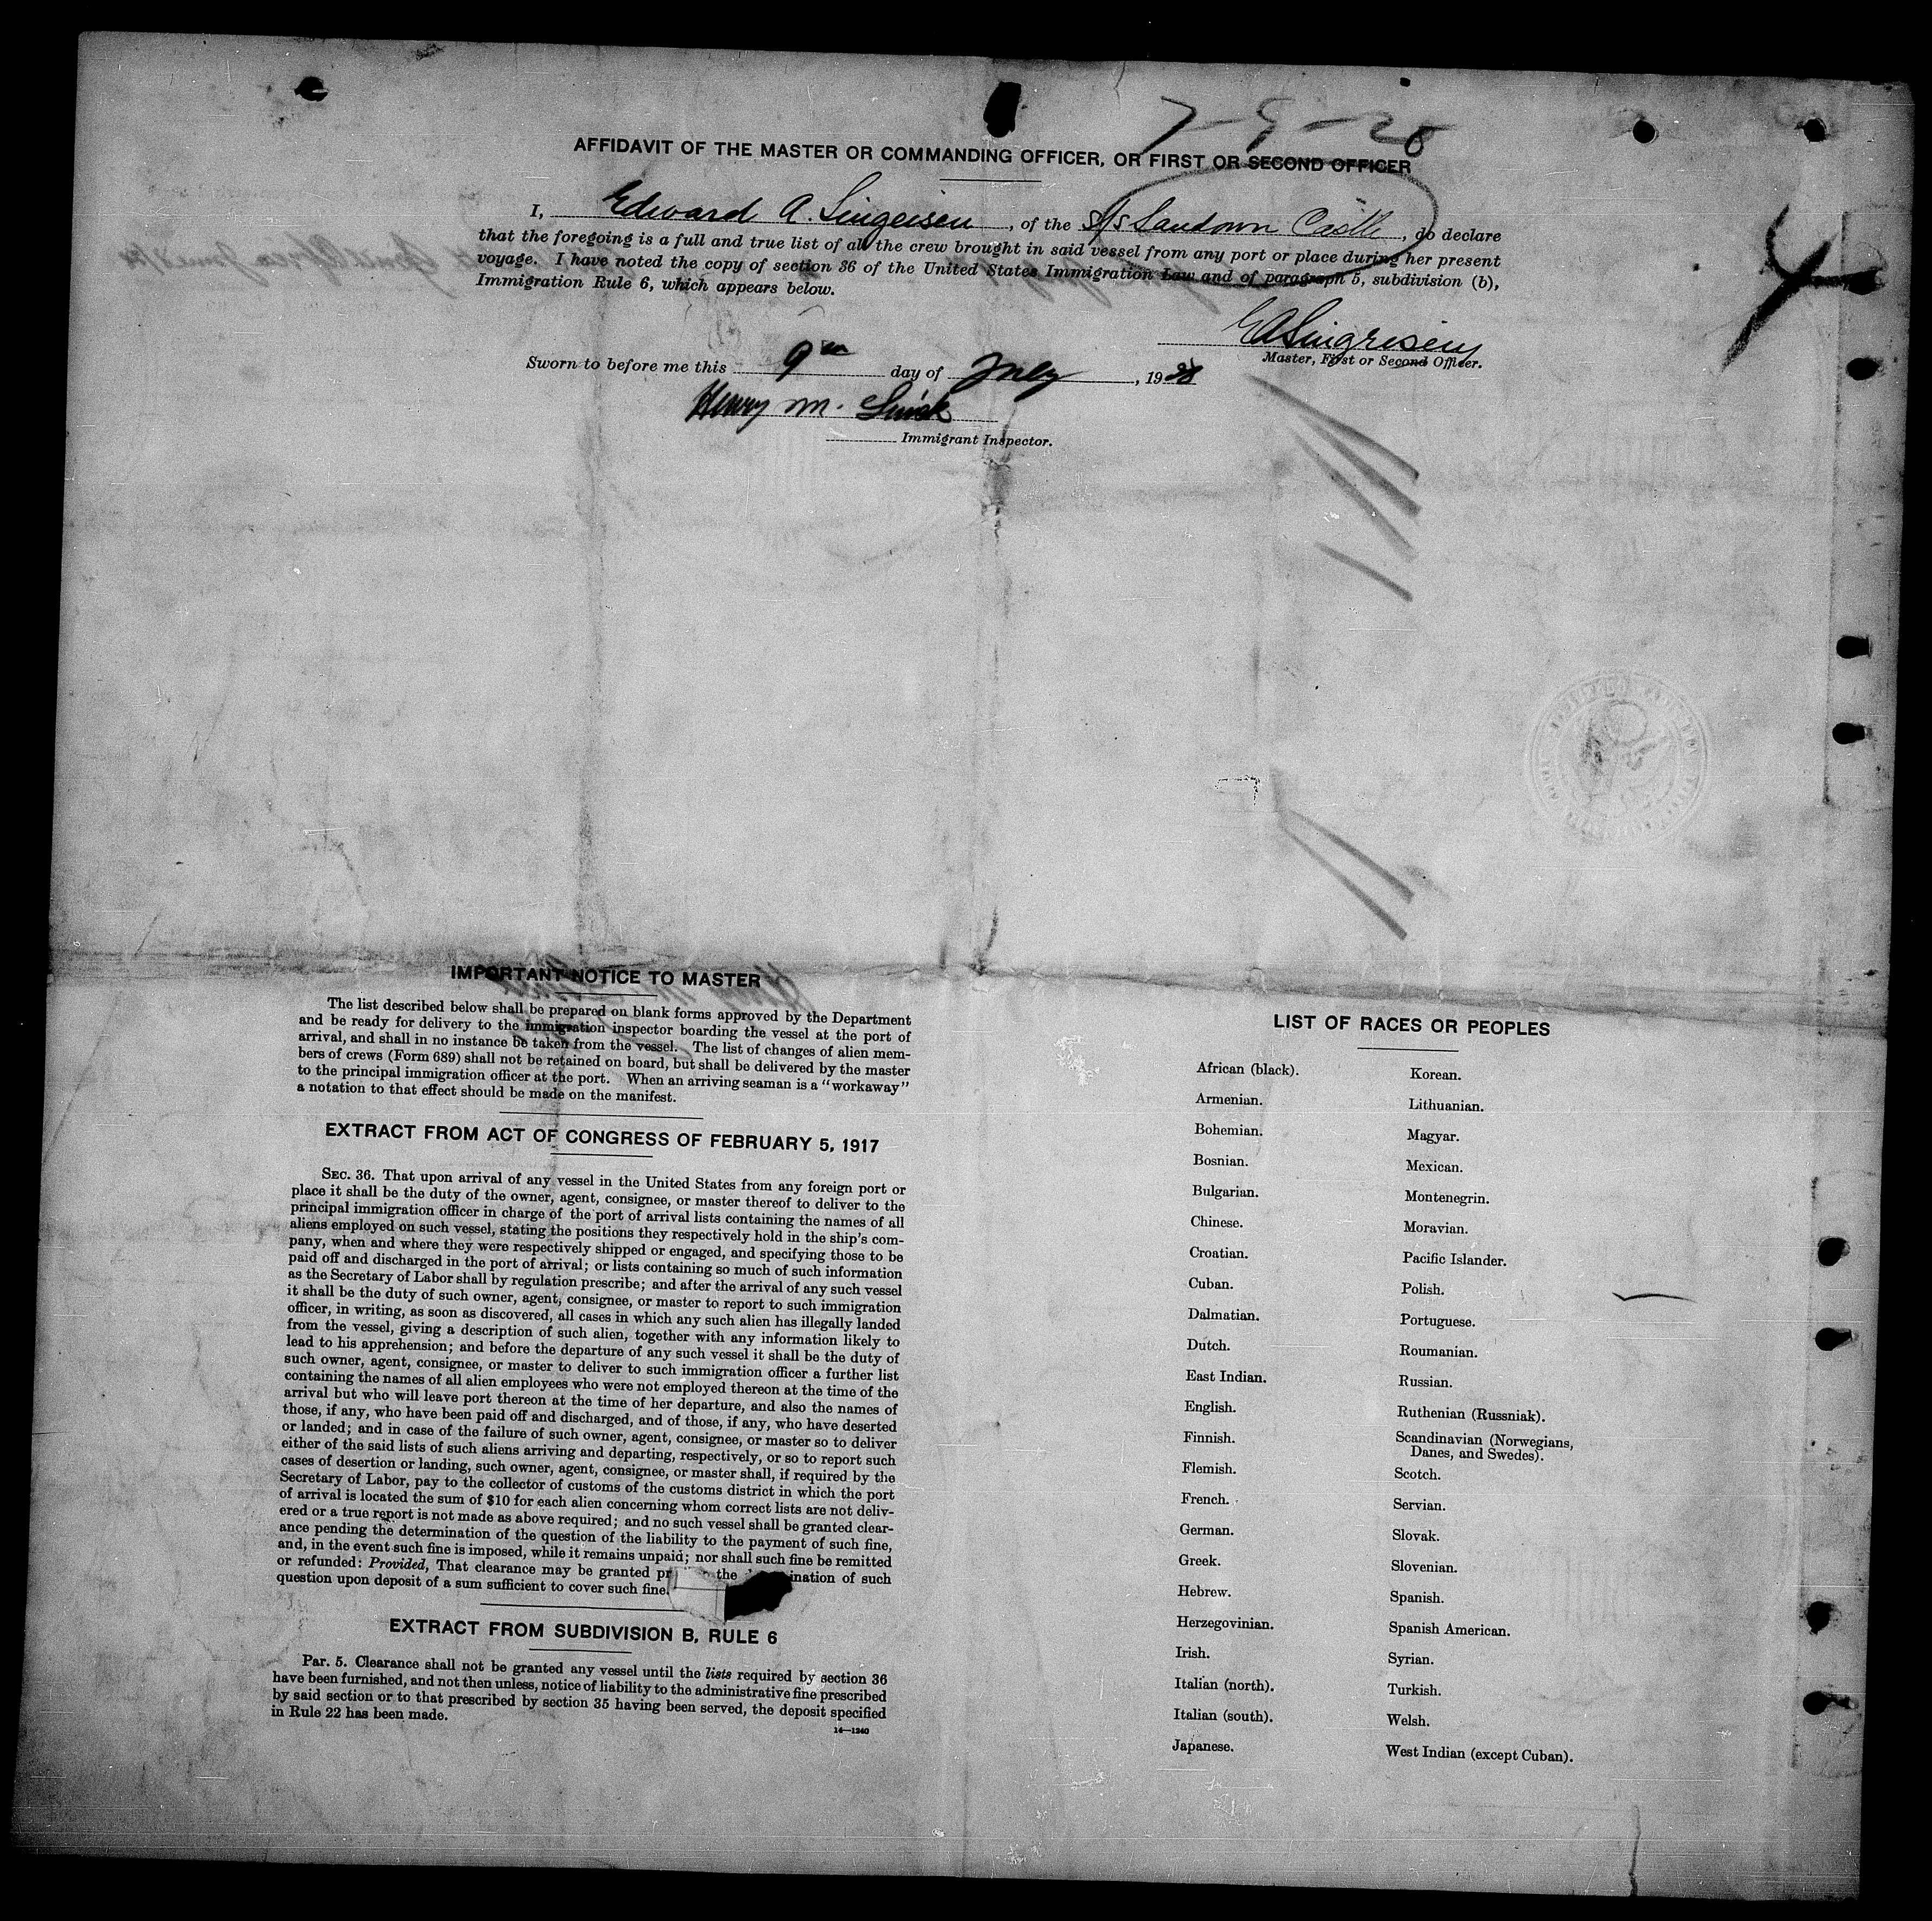 7-9-28
AFFIDAVIT OF THE MASTER OR COMMANDING OFFICER, OR FIRST OR SECOND OFFICER
I, Edward A. Singeisen, of the S/S Sandown Castle, do declare
that the foregoing is a full and true list of all the crew brought in said vessel from any port or place during her present
voyage. I have noted the copy of section 36 of the United States Immigration Law and of paragraph 5, subdivision (b),
Immigration Rule 6, which appears below.
Master, First or Second Officer.
Sworn to before me this 9th day of July, 1928
Henry M.
Immigrant Inspector.
IMPORTANT NOTICE TO MASTER
The list described below shall be prepared on blank forms approved by the Department
and be ready for delivery to the immigration inspector boarding the vessel at the port of
arrival, and shall in no instance be taken from the vessel. The list of changes of alien mem-
bers of crews (Form 689) shall not be retained on board, but shall be delivered by the master
to the principal immigration officer at the port. When an arriving seaman is a "workaway"
a notation to that effect should be made on the manifest.
EXTRACT FROM ACT OF CONGRESS OF FEBRUARY 5, 1917
SEC. 36. That upon arrival of any vessel in the United States from any foreign port or
place it shall be the duty of the owner, agent, consignee, or master thereof to deliver to the
principal immigration officer in charge of the port of arrival lists containing the names of all
aliens employed on such vessel, stating the positions they respectively hold in the ship's com-
pany, when and where they were respectively shipped or engaged, and specifying those to be
paid off and discharged in the port of arrival; or lists containing so much of such information
as the Secretary of Labor shall by regulation prescribe; and after the arrival of any such vessel
it shall be the duty of such owner, agent, consignee, or master to report to such immigration
officer, in writing, as soon as discovered, all cases in which any such alien has illegally landed
from the vessel, giving a description of such alien, together with any information likely to
lead to his apprehension; and before the departure of any such vessel it shall be the duty of
such owner, agent, consignee, or master to deliver to such immigration officer a further list
containing the names of all alien employees who were not employed thereon at the time of the
arrival but who will leave port thereon at the time of her departure, and also the names of
those, if any, who have been paid off and discharged, and of those, if any, who have deserted
or landed; and in case of the failure of such owner, agent, consignee, or master so to deliver
either of the said lists of such aliens arriving and departing, respectively, or so to report such
cases of desertion or landing, such owner, agent, consignee, or master shall, if required by the
Secretary of Labor, pay to the collector of customs of the customs district in which the port
of arrival is located the sum of $10 for each alien concerning whom correct lists are not deliv-
ered or a true report is not made as above required; and no such vessel shall be granted clear-
ance pending the determination of the question of the liability to the payment of such fine,
and, in the event such fine is imposed, while it remains unpaid; nor shall such fine be remitted
or refunded: Provided, That clearance may be granted pr the ination of such
question upon deposit of a sum sufficient to cover such fine.
EXTRACT FROM SUBDIVISION B, RULE 6
Par. 5. Clearance shall not be granted any vessel until the lists required by section 36
have been furnished, and not then unless, notice of liability to the administrative fine prescribed
by said section or to that prescribed by section 35 having been served, the deposit specified
in Rule 22 has been made.
14—1240
LIST OF RACES OR PEOPLES
African (black).
Armenian.
Bohemian.
Bosnian.
Bulgarian.
Chinese.
Croatian.
Cuban.
Dalmatian.
Dutch.
East Indian.
English.
Finnish.
Flemish.
French.
German.
Greek.
Hebrew.
Herzegovinian.
Irish.
Italian (north).
Italian (south).
Japanese.
Korean.
Lithuanian.
Magyar.
Mexican.
Montenegrin.
Moravian.
Pacific Islander.
Polish.
Portuguese.
Roumanian.
Russian.
Ruthenian (Russniak).
Scandinavian (Norwegians,
Danes, and Swedes).
Scotch.
Servian.
Slovak.
Slovenian.
Spanish.
Spanish American.
Syrian.
Turkish.
Welsh.
West Indian (except Cuban).